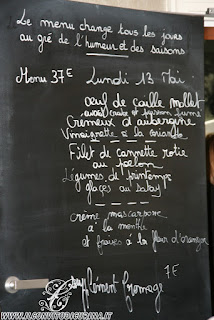 Le menu change tous les jours
au gré de l'humeur et des saisons
Menu 37€ Lundi 13 Mai:
œuf de caille mollet
fumé
Crémeux d'aubergine
Vinaigrette à la coriande
Filet de cannette rotie
au poelon
Légumes de printemps
glaçés au sabay!
crème mascarpone
à la menthe
et fraises à la fleur d'oranger
supplément fromage 7€
WWW.ILCONVITODICURINA.IT